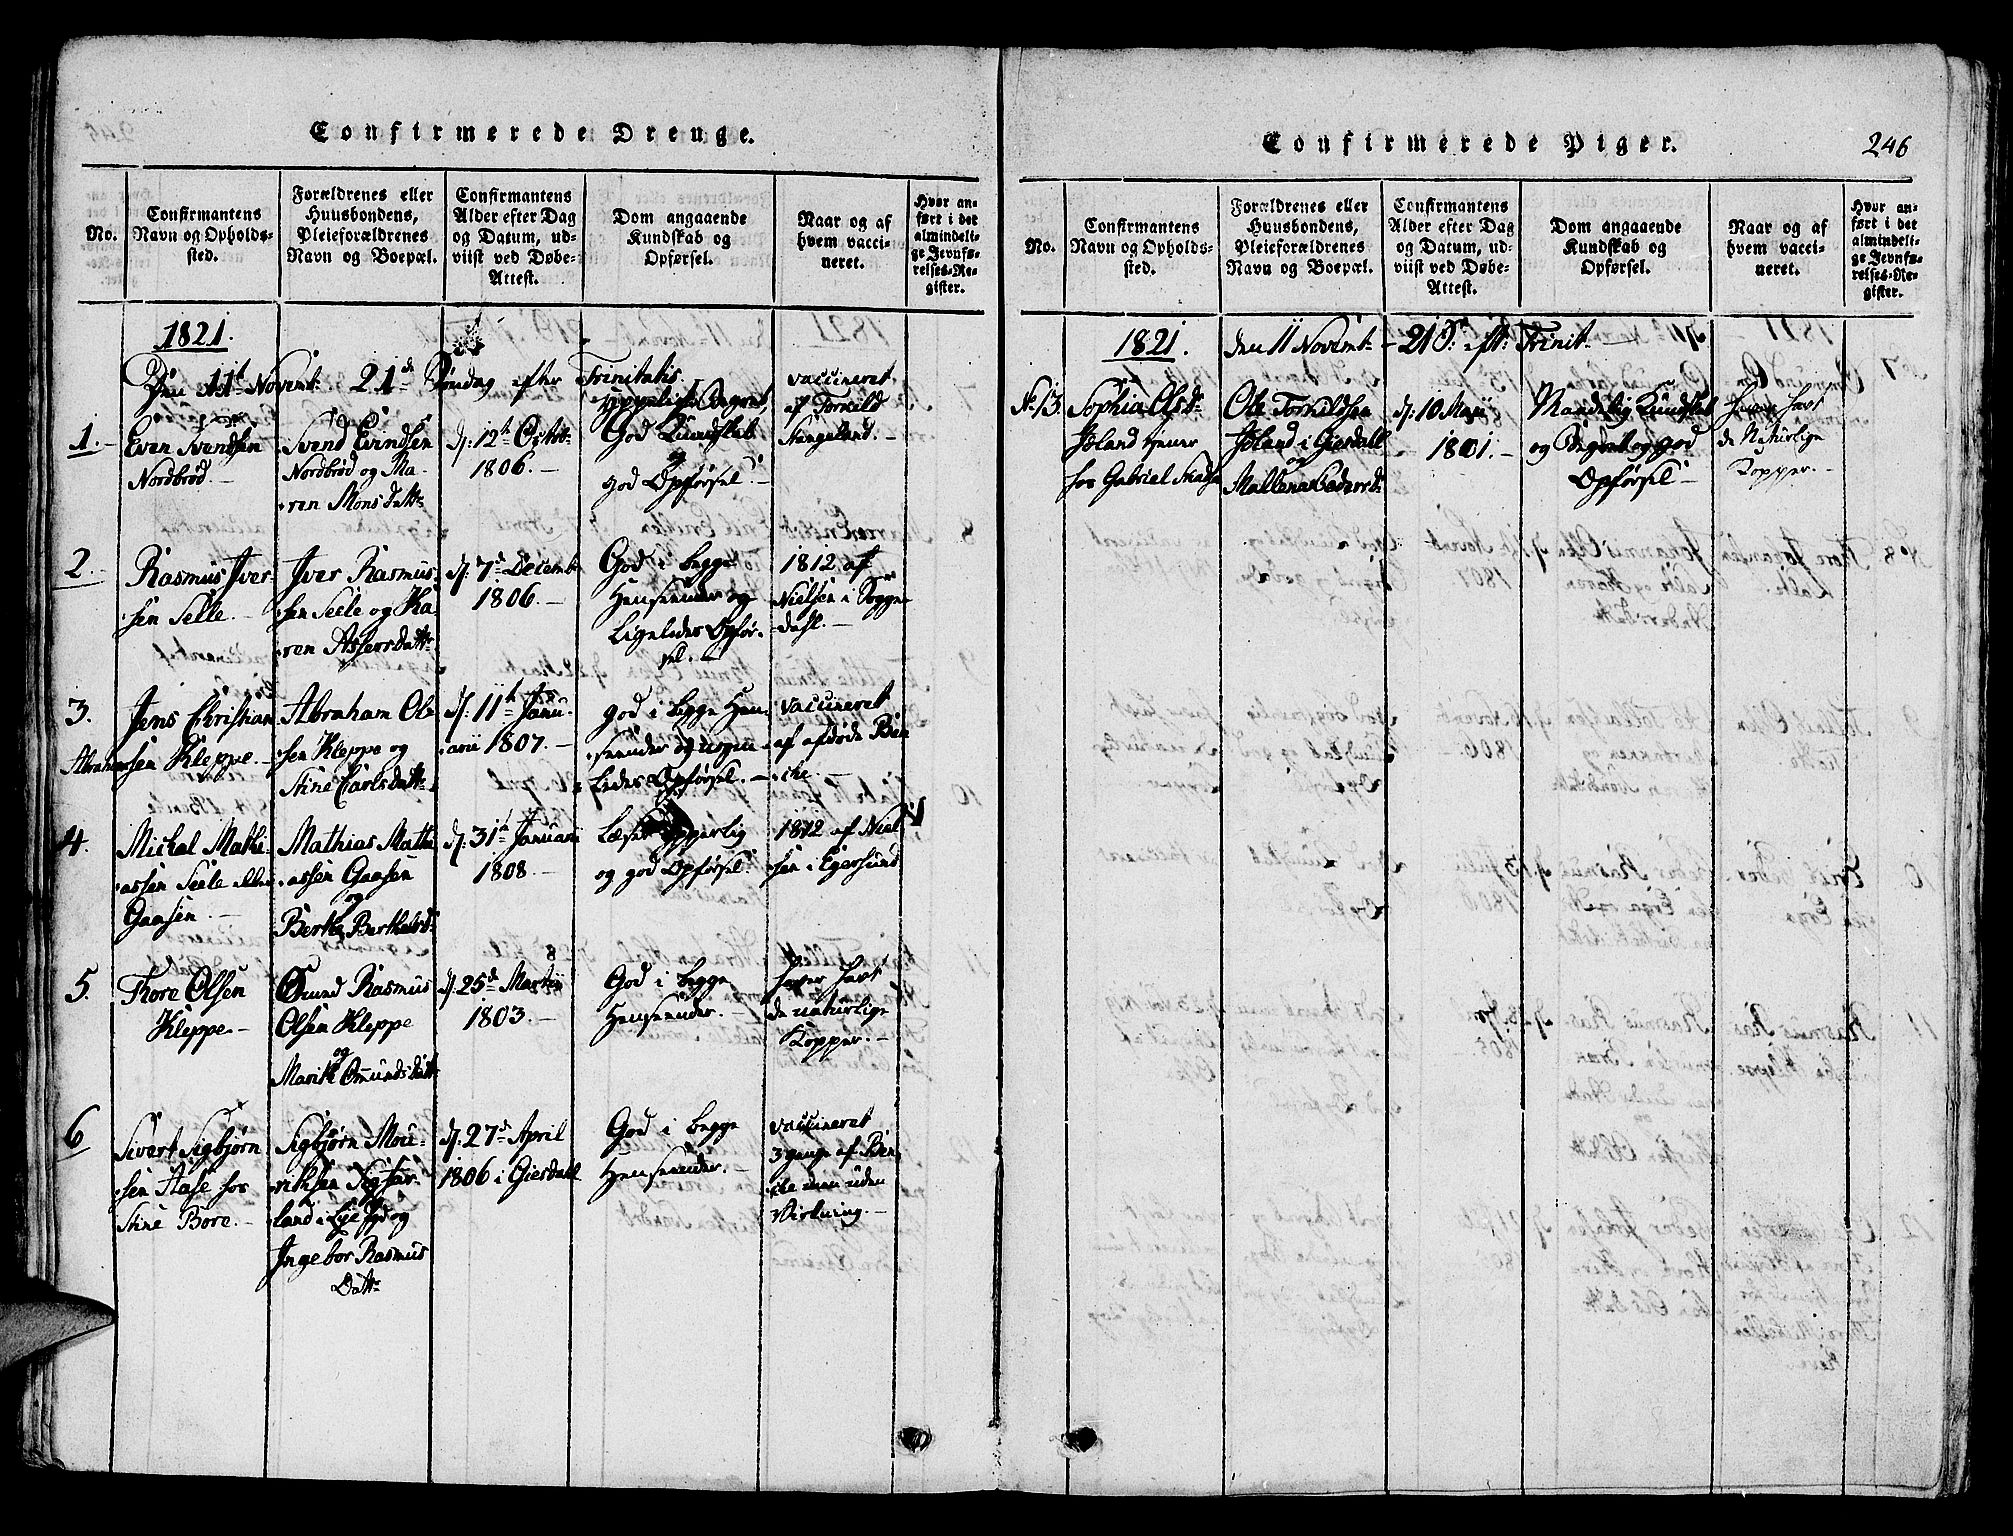 Confirmerede Drenge.
No.
Confirmantens Navn og Opholds-sted.
Forældrenes eller Huusbondens, Pleieforældrenes Navn og Boepæl.
Confirmantens Alder efter Dag og Datum, ud-viist ved Døbe-Attest.
Dom angaaende Kundskab og Opførsel.
Naar og af hvem vacci-neret.
Hvor an-ført i det almindeli-ge Jevnfø-relses-Re-gister.
1821.
Den 11t Novembr 21de Søndag efter Trinitatis.
1.
Even Svendsen
Nordbrød.
Svend Evindsen
Nordbrød og Ma-
ren Monsdattr
d. 12te Octo
1806.
God Kundskab
og
god Opførsel
vaccineret
af Torkild
Stangeland.
2.
Rasmus Iver
sen Selle.
Iver Rasmus
sen Seele og Ka
ren Assersdattr
d. 7de Decemb
1806.
God i begge
Henseender og
Ligeledes Opfør-
sel.
1812 af
Nielsen i Sogge
dahl.
3.
Jens Christian
Abraham sen Kleppe
Abraham Ole
sen Kleppe og
Stine Carlsdattr
d. 11te Janu-
arii 1807.
god i begge Hen
seender og
ledes Opførsel.
vaccineret
af afdøde Bin
che.
4.
Michel Mathi-
assen Seele
Gaasen
Mathias Mathi
assen Gaasen
og
Berthe Bertheisd
d. 31te Januarii
1808
Læser
og god Opførsel
1812 af Niel
sen i Egersund
5.
Thore Olsen
Kleppe
Omund Rasmus
Olsen Kleppe
og
Marithe Omundsdattr
d. 25de Martii
1803.
God i begge
Henseender.
haver havt
de naturlige
Kopper.
6
Sivert Sigbjørn
sen Aase hos
Stine Bore.
Sigbjørn Mou-
ritsen
land i Lye og
Ingebor Rasmus
Dattr
d. 27de April
1806 i Giesdall
God i begge
Henseender.
vaccineret
3 gange af Bin
che men uden
Virkning.
Confirmerede Piger.
246
No.
Confirmantens Navn og Opholds-sted.
Forældrenes eller Huusbondens, Pleieforældrenes Navn og Boepæl.
Confirmantens Alder efter Dag og Datum, ud-viist ved Døbe-Attest.
Dom angaaende Kundskab og Opførsel.
Naar og af hvem vacci-neret.
Hvor an-ført i det almindeli-ge Jevnfø-relses-Re-gister.
1821. den 11 Novembr 21 S. eft. Trinit.
No 13.
Sophia Olsdr
tiener
hos Gabriel
Ole Torkildsen
i Giesdall
og
Mallena
d. 10 Maji
1801.
Maadelig Kundskab
og Begreb og god
Opførsel
haver havt
de Naturlige
Kopper.